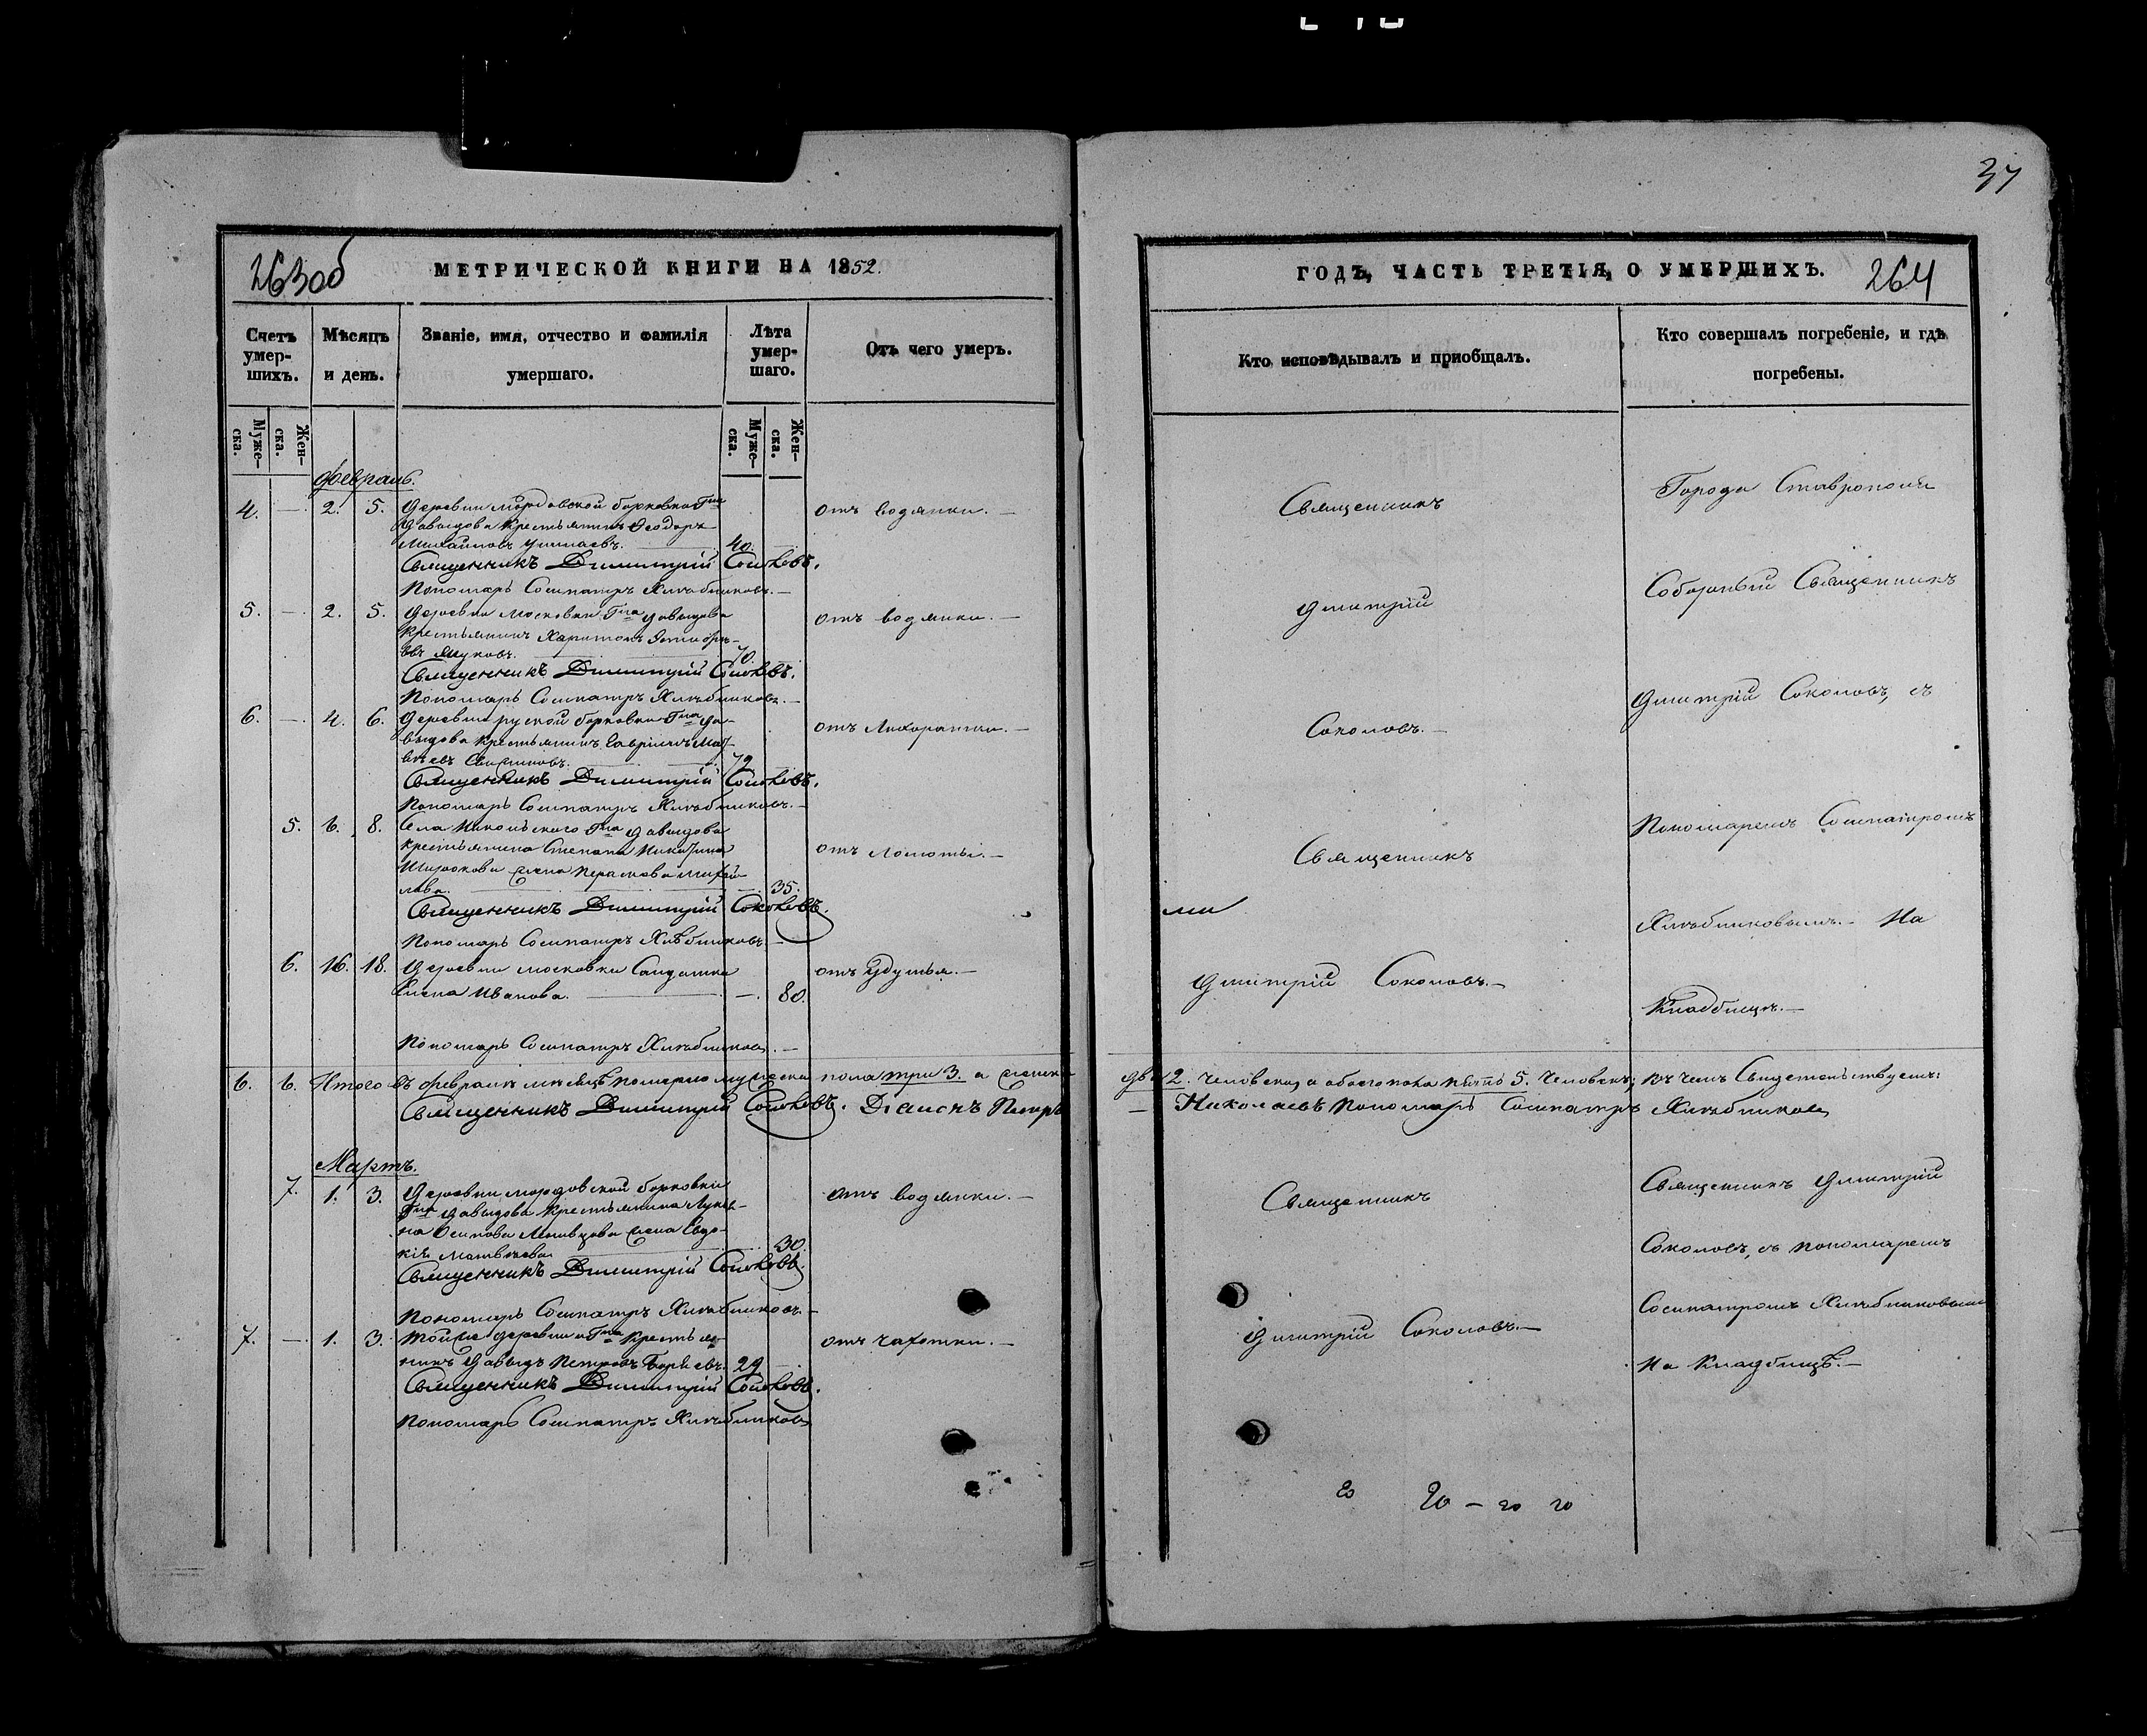 37
263об
МЕТРИЧЕСКОЙ КНИГИ НА 1852.
Счетъ умер-шихъ.
Мѣсяцъ и день.
Званіе, имя, отчество и фамилія умершаго.
Лѣта умер-шаго.
Отъ чего умеръ.
Муже-ска.
Жен-ска.
Муже-ска.
Жен-ска.
Февраль.
4. — 2. 5. Деревни мордовской борковки Гна отъ водянки. —
Давыдова крестьянинъ Ѳеодоръ
Михайловъ 40.
Священникъ Димитрій Соколовъ.
Пономарь Сосипатръ Хлѣбниковъ. —
5. — 2. 5. Деревни Московки Гна Давыдова отъ водянки. —
крестьянинъ Харитонъ
въ Жуковъ. 70.
Священникъ Димитрій Соколовъ.
Пономарь Сосипатръ Хлѣбниковъ. —
6. — 4. 6. Деревни руской борковки Гна Да- отъ Лихоратки. —
выдова крестьянинъ Гавріилъ Мат-
вѣевъ 72
Священникъ Димитрій Соколовъ.
Пономарь Сосипатръ Хлѣбниковъ. —
5. 6. 8. Села Никольского Гна Давыдова
крестьянина Степана Никитина отъ ломоты. —
Широкова жена Михай-
лова. — 35.
Священникъ Димитрій Соколовъ.
Пономарь Сосипатръ Хлѣбниковъ. —
6. 16. 18. Деревни московки Салдатка отъ удушья. —
Елена Иванова. — 80.
Пономарь Сосипатръ Хлѣбниковъ. —
6. 6. Итого въ февралѣ мѣсяцѣ померло мужеска пола три 3. а женска
Священникъ Димитрій Соколовъ. Діаконъ Петръ
Мартъ.
7. 1. 3. Деревни мордовской борковки отъ водянки. —
Гна Давыдова крестьянина Лукья-
на Осипова жена Евдо-
кія Матвѣева 30.
Священникъ Димитрій Соколовъ.
Пономарь Сосипатръ Хлѣбниковъ. —
7. — 1. 3. Тойже деревни и Гна крестья- отъ чахотки. —
нинъ Давыдъ Петровъ 29 —
Священникъ Димитрій Соколовъ.
Пономарь Сосипатръ Хлѣбниковъ
ГОДЪ, ЧАСТЬ ТРЕТІЯ, О УМЕРШИХЪ.
264
Кто исповѣдывалъ и приобщалъ.
Кто совершалъ погребеніе, и гдѣ погребены.
Священникъ
Дмитрій
Соколовъ. —
Священникъ
Дмитрій Соколовъ. —
Города Ставрополя
Соборный Священникъ
Дмитрій Соколовъ, съ
Пономаремъ Сосипатромъ
Хлѣбниковымъ. — На
Кладбищѣ. —
два 2. человека, а обоего пола пять 5. человекъ; въ чемъ Свидетельствуемъ:
— Николаевъ Пономарь Сосипатръ Хлѣбниковъ
Священникъ
Дмитрій Соколовъ. —
Священникъ Дмитрій
Соколовъ, съ пономаремъ
Сосипатромъ Хлѣбниковымъ
На Кладбищѣ. —